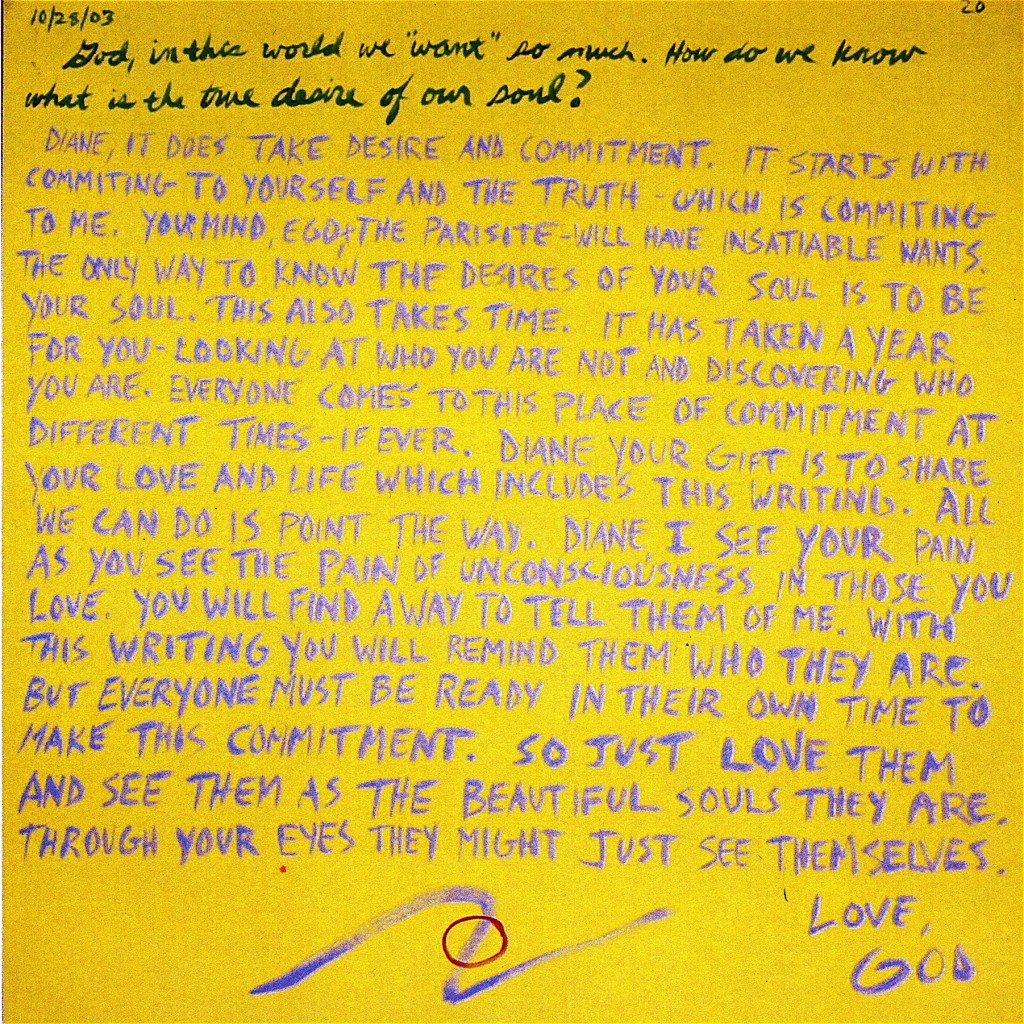 10/28/03
20
God, in this world we "want" so much. How do we know
what is the true desire of our soul?
DIANE, IT DOES TAKE DESIRE AND COMMITMENT. IT STARTS WITH
COMMITING TO YOURSELF AND THE TRUTH - WHICH IS COMMITING
TO ME. YOUR MIND, EGO, + THE PARISITE - WILL HAVE INSATIABLE WANTS.
THE ONLY WAY TO KNOW THE DESIRES OF YOUR SOUL IS TO BE
YOUR SOUL. THIS ALSO TAKES TIME. IT HAS TAKEN A YEAR
FOR YOU - LOOKING AT WHO YOU ARE NOT AND DISCOVERING WHO
YOU ARE. EVERYONE COMES TO THIS PLACE OF COMMITMENT AT
DIFFERENT TIMES - IF EVER. DIANE YOUR GIFT IS TO SHARE
YOUR LOVE AND LIFE WHICH INCLUDES THIS WRITING. ALL
WE CAN DO IS POINT THE WAY. DIANE, I SEE YOUR PAIN
AS YOU SEE THE PAIN OF UNCONSCIOUSNESS IN THOSE YOU
LOVE. YOU WILL FIND A WAY TO TELL THEM OF ME. WITH
THIS WRITING YOU WILL REMIND THEM WHO THEY ARE.
BUT EVERYONE MUST BE READY IN THEIR OWN TIME TO
MAKE THIS COMMITMENT. SO JUST LOVE THEM
AND SEE THEM AS THE BEAUTIFUL SOULS THEY ARE.
THROUGH YOUR EYES THEY MIGHT JUST SEE THEMSELVES.
LOVE,
GOD